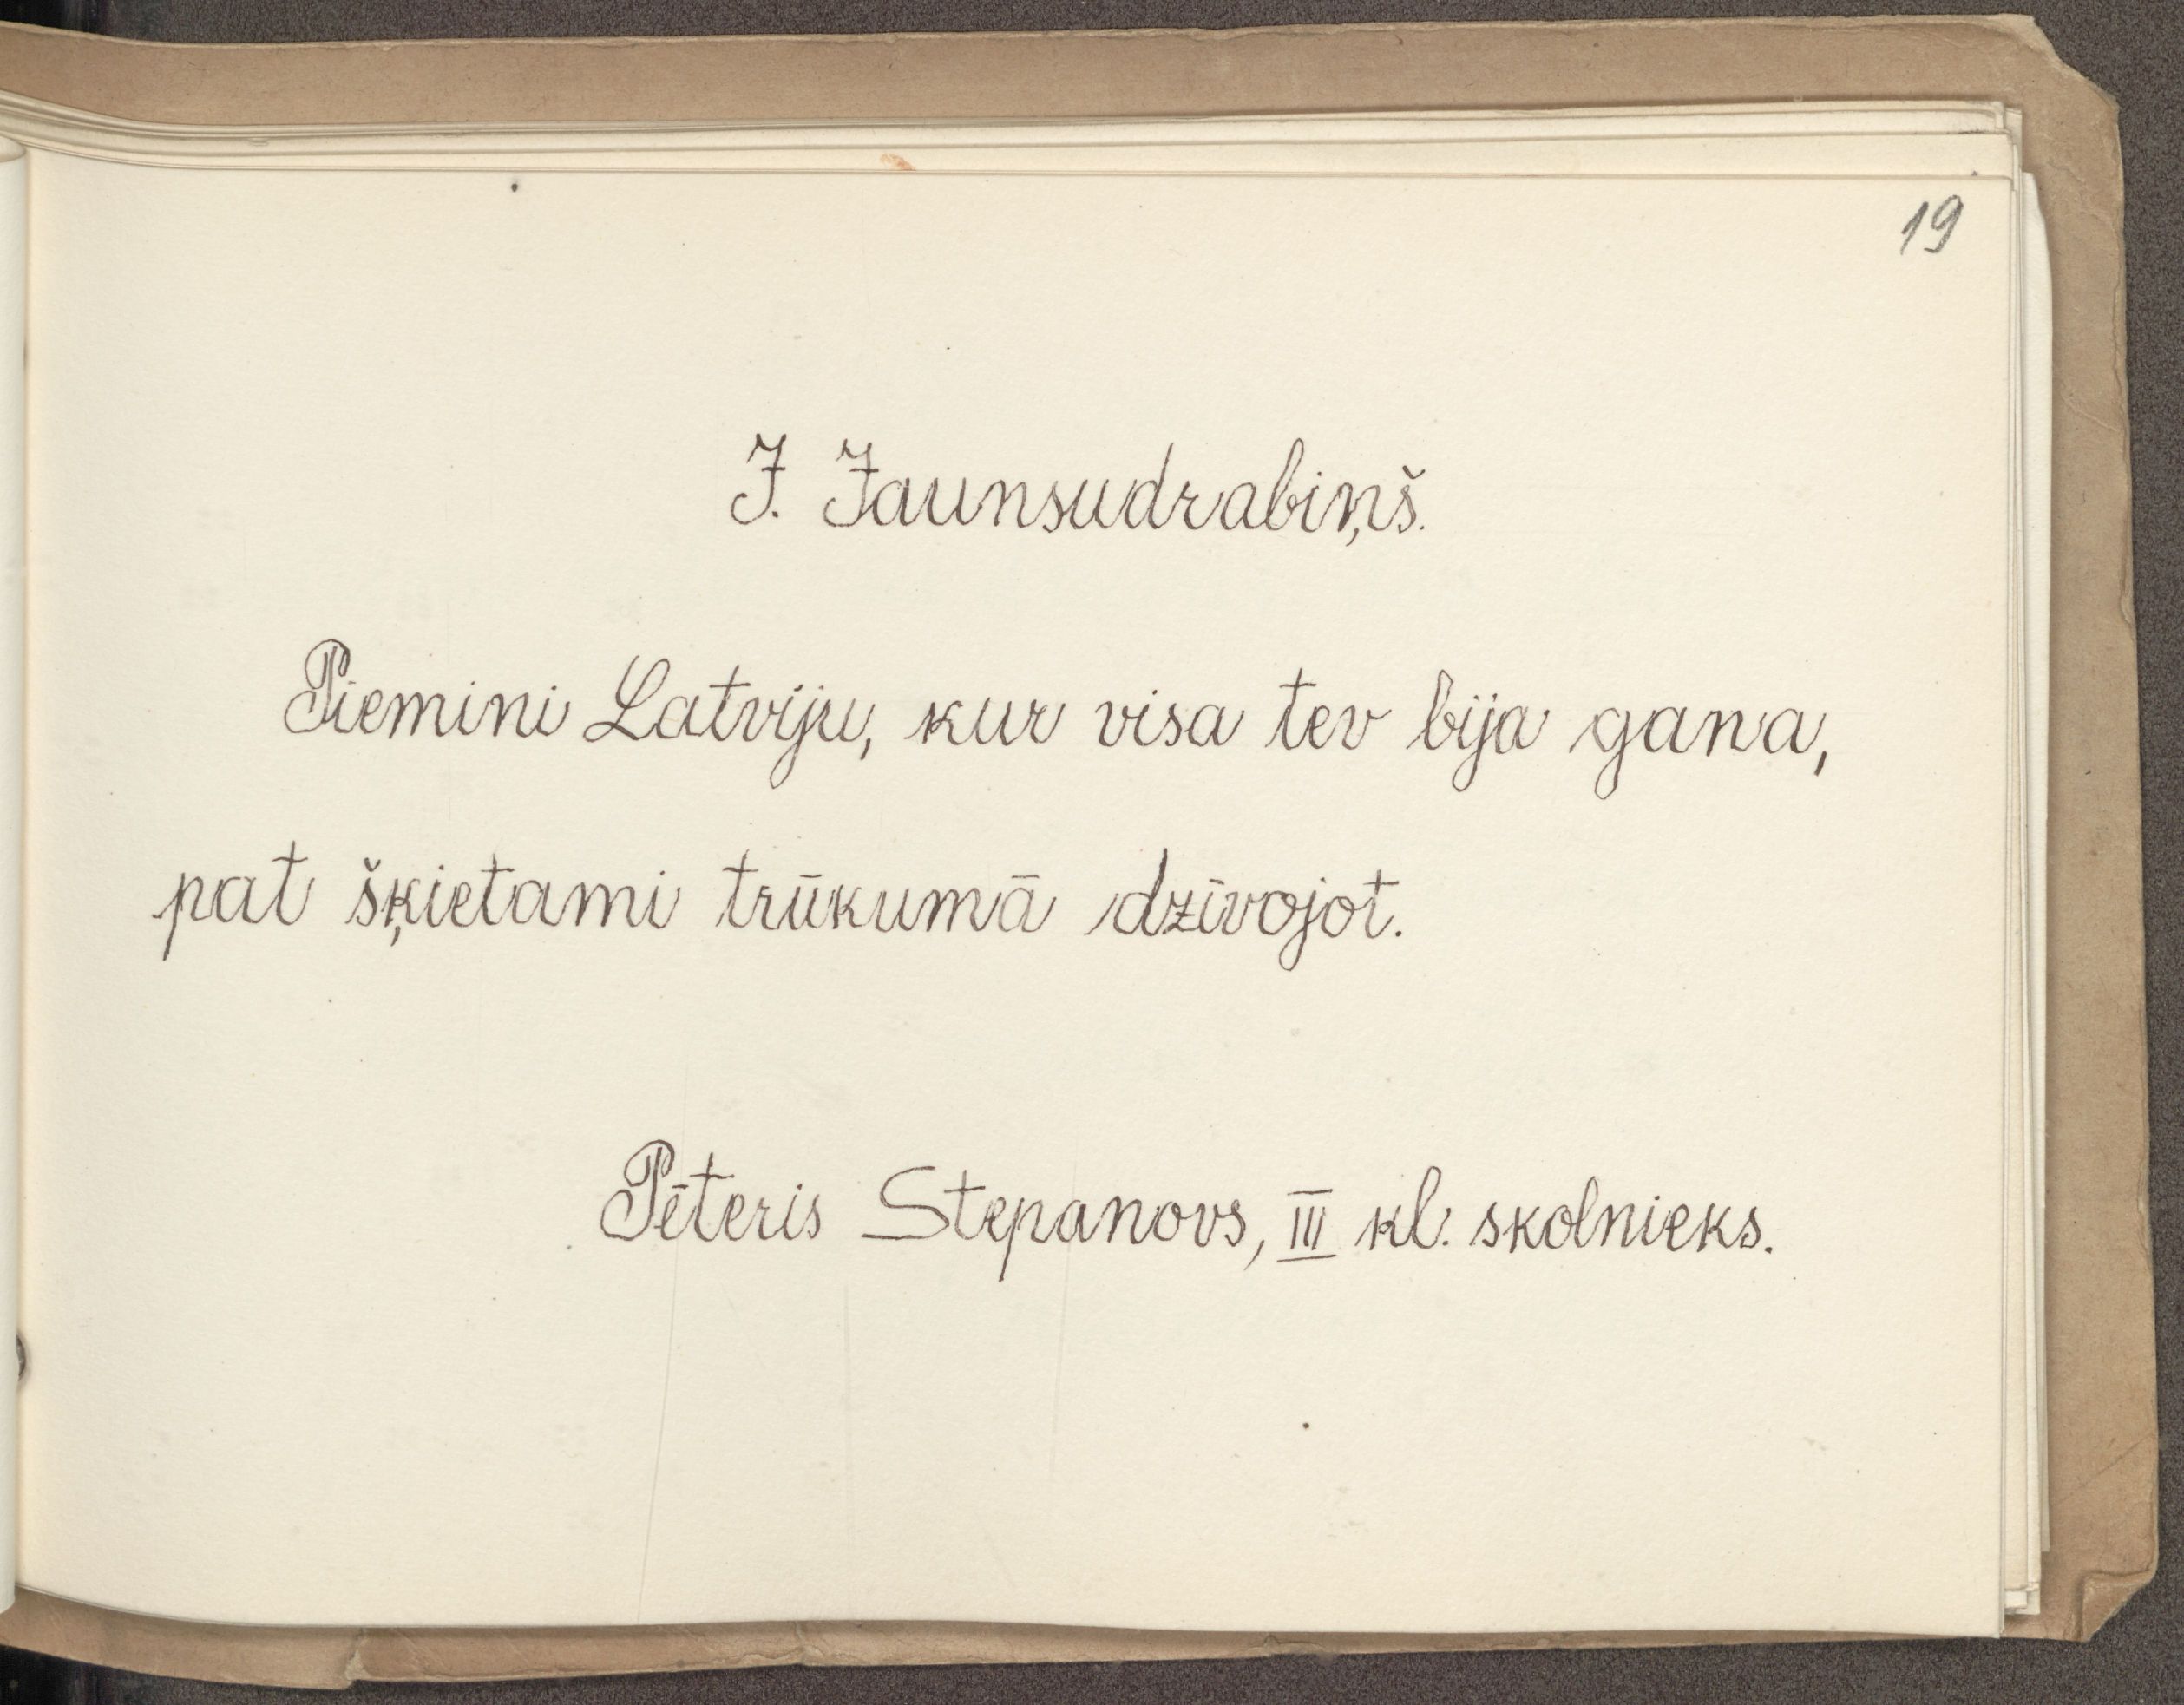 19
J. Jaunsudrabiņš.
Piemini Latviju, kur visa tev bija gana,
pat šķietami trūkumā dzīvojot.
Pēteris Stepanovs, III kl. skolnieks.